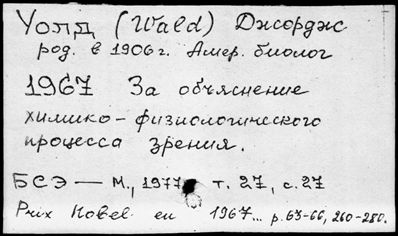 Уолд (Wald) Джордж
род. в 1906г. Амер. биолог
1967 За объяснение
химико-физиологического
процесса зрения.
БСЭ — М., 1977 т. 27, с. 27
Prix Nobel en 1967... p. 63-66, 260-280.